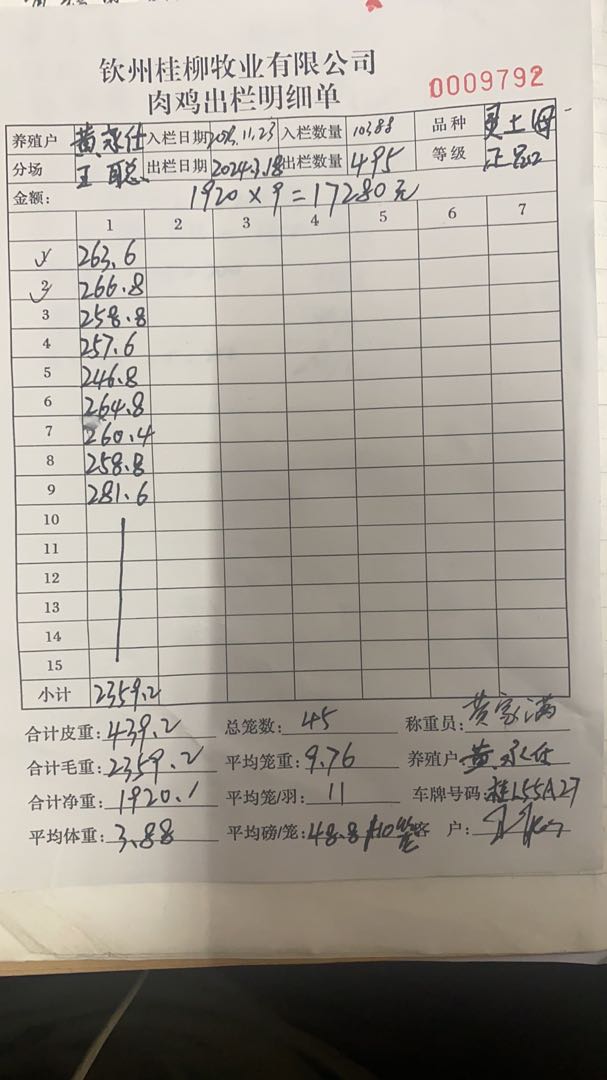 钦州桂柳牧业有限公司
肉鸡出栏明细单
0009792
养殖户 黄永仕 入栏日期 2023.11.23 入栏数量 10388 品种 灵土母
分场 王聪 出栏日期 2024.3.18 出栏数量 495 等级 正品
金额: 1920×9=17280元
1 2 3 4 5 6 7
1 263.6
2 266.8
3 258.8
4 257.6
5 246.8
6 264.8
7 260.4
8 258.8
9 281.6
10
11
12
13
14
15
小计 2359.2
合计皮重: 439.2 总笼数: 45 称重员: 黄家满
合计毛重: 2359.2 平均笼重: 9.76 养殖户: 黄永仕
合计净重: 1920.1 平均笼/羽: 11 车牌号码: 桂L55A27
平均体重: 3.88 平均磅/笼: 48.8/10笼 客户: